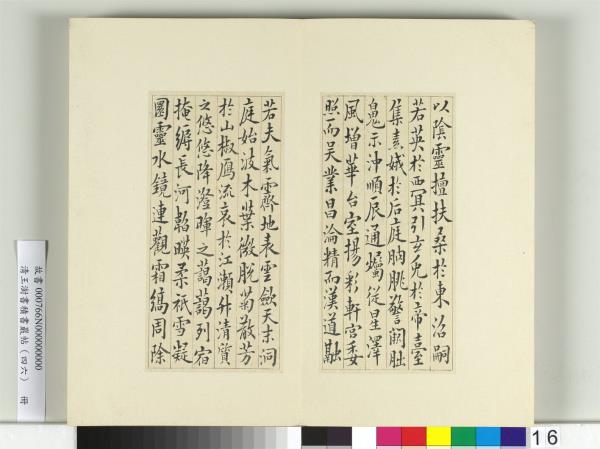 以陰靈擅扶桑於東沼嗣
若英於西冥引玄兎於帝臺
集素娥於后庭朒朓警闕朏
魄示沖順辰通燭從星澤
風增華台室揚彩軒宮委
照而吳業昌淪精而漢道融
若夫氣霽地表雲斂天末洞
庭始波木葉微脫菊散芳
於山椒雁流哀於江瀬升清質
之悠悠降澄暉之藹藹列宿
掩縟長河韜暎柔祇雪凝
圓靈水鏡連觀霜縞周除
故書 000766N000000000
清王澍書積書巖帖（四六） 冊
16